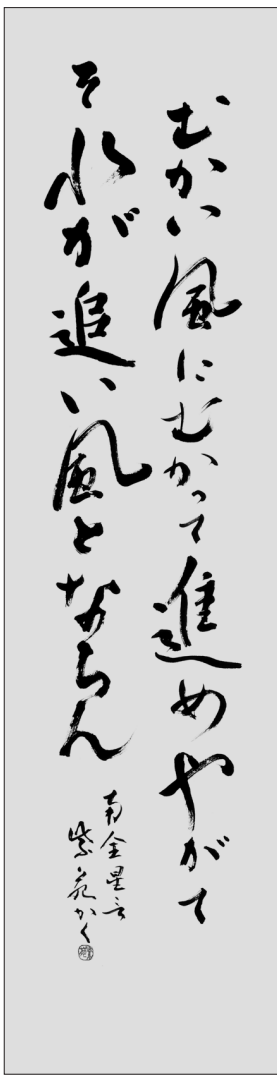 むかい風にむかって進めやがて
それが追い風となちん
南金星言
紫苑かく